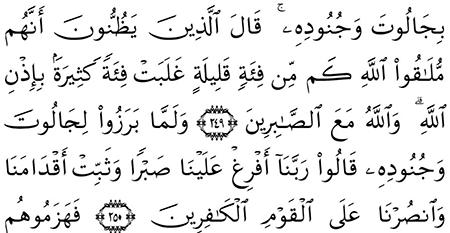 بِجَالُوتَ وَجُنُودِهِۦۚ قَالَ ٱلَّذِينَ يَظُنُّونَ أَنَّهُم
مُّلَٰقُواْ ٱللَّهِ كَم مِّن فِئَةٍ قَلِيلَةٍ غَلَبَتْ فِئَةً كَثِيرَةَۢ بِإِذْنِ
ٱللَّهِۗ وَٱللَّهُ مَعَ ٱلصَّٰبِرِينَ ٢٤٩ وَلَمَّا بَرَزُواْ لِجَالُوتَ
وَجُنُودِهِۦ قَالُواْ رَبَّنَآ أَفْرِغْ عَلَيْنَا صَبْرًا وَثَبِّتْ أَقْدَامَنَا
وَٱنصُرْنَا عَلَى ٱلْقَوْمِ ٱلْكَٰفِرِينَ ٢٥٠ فَهَزَمُوهُم